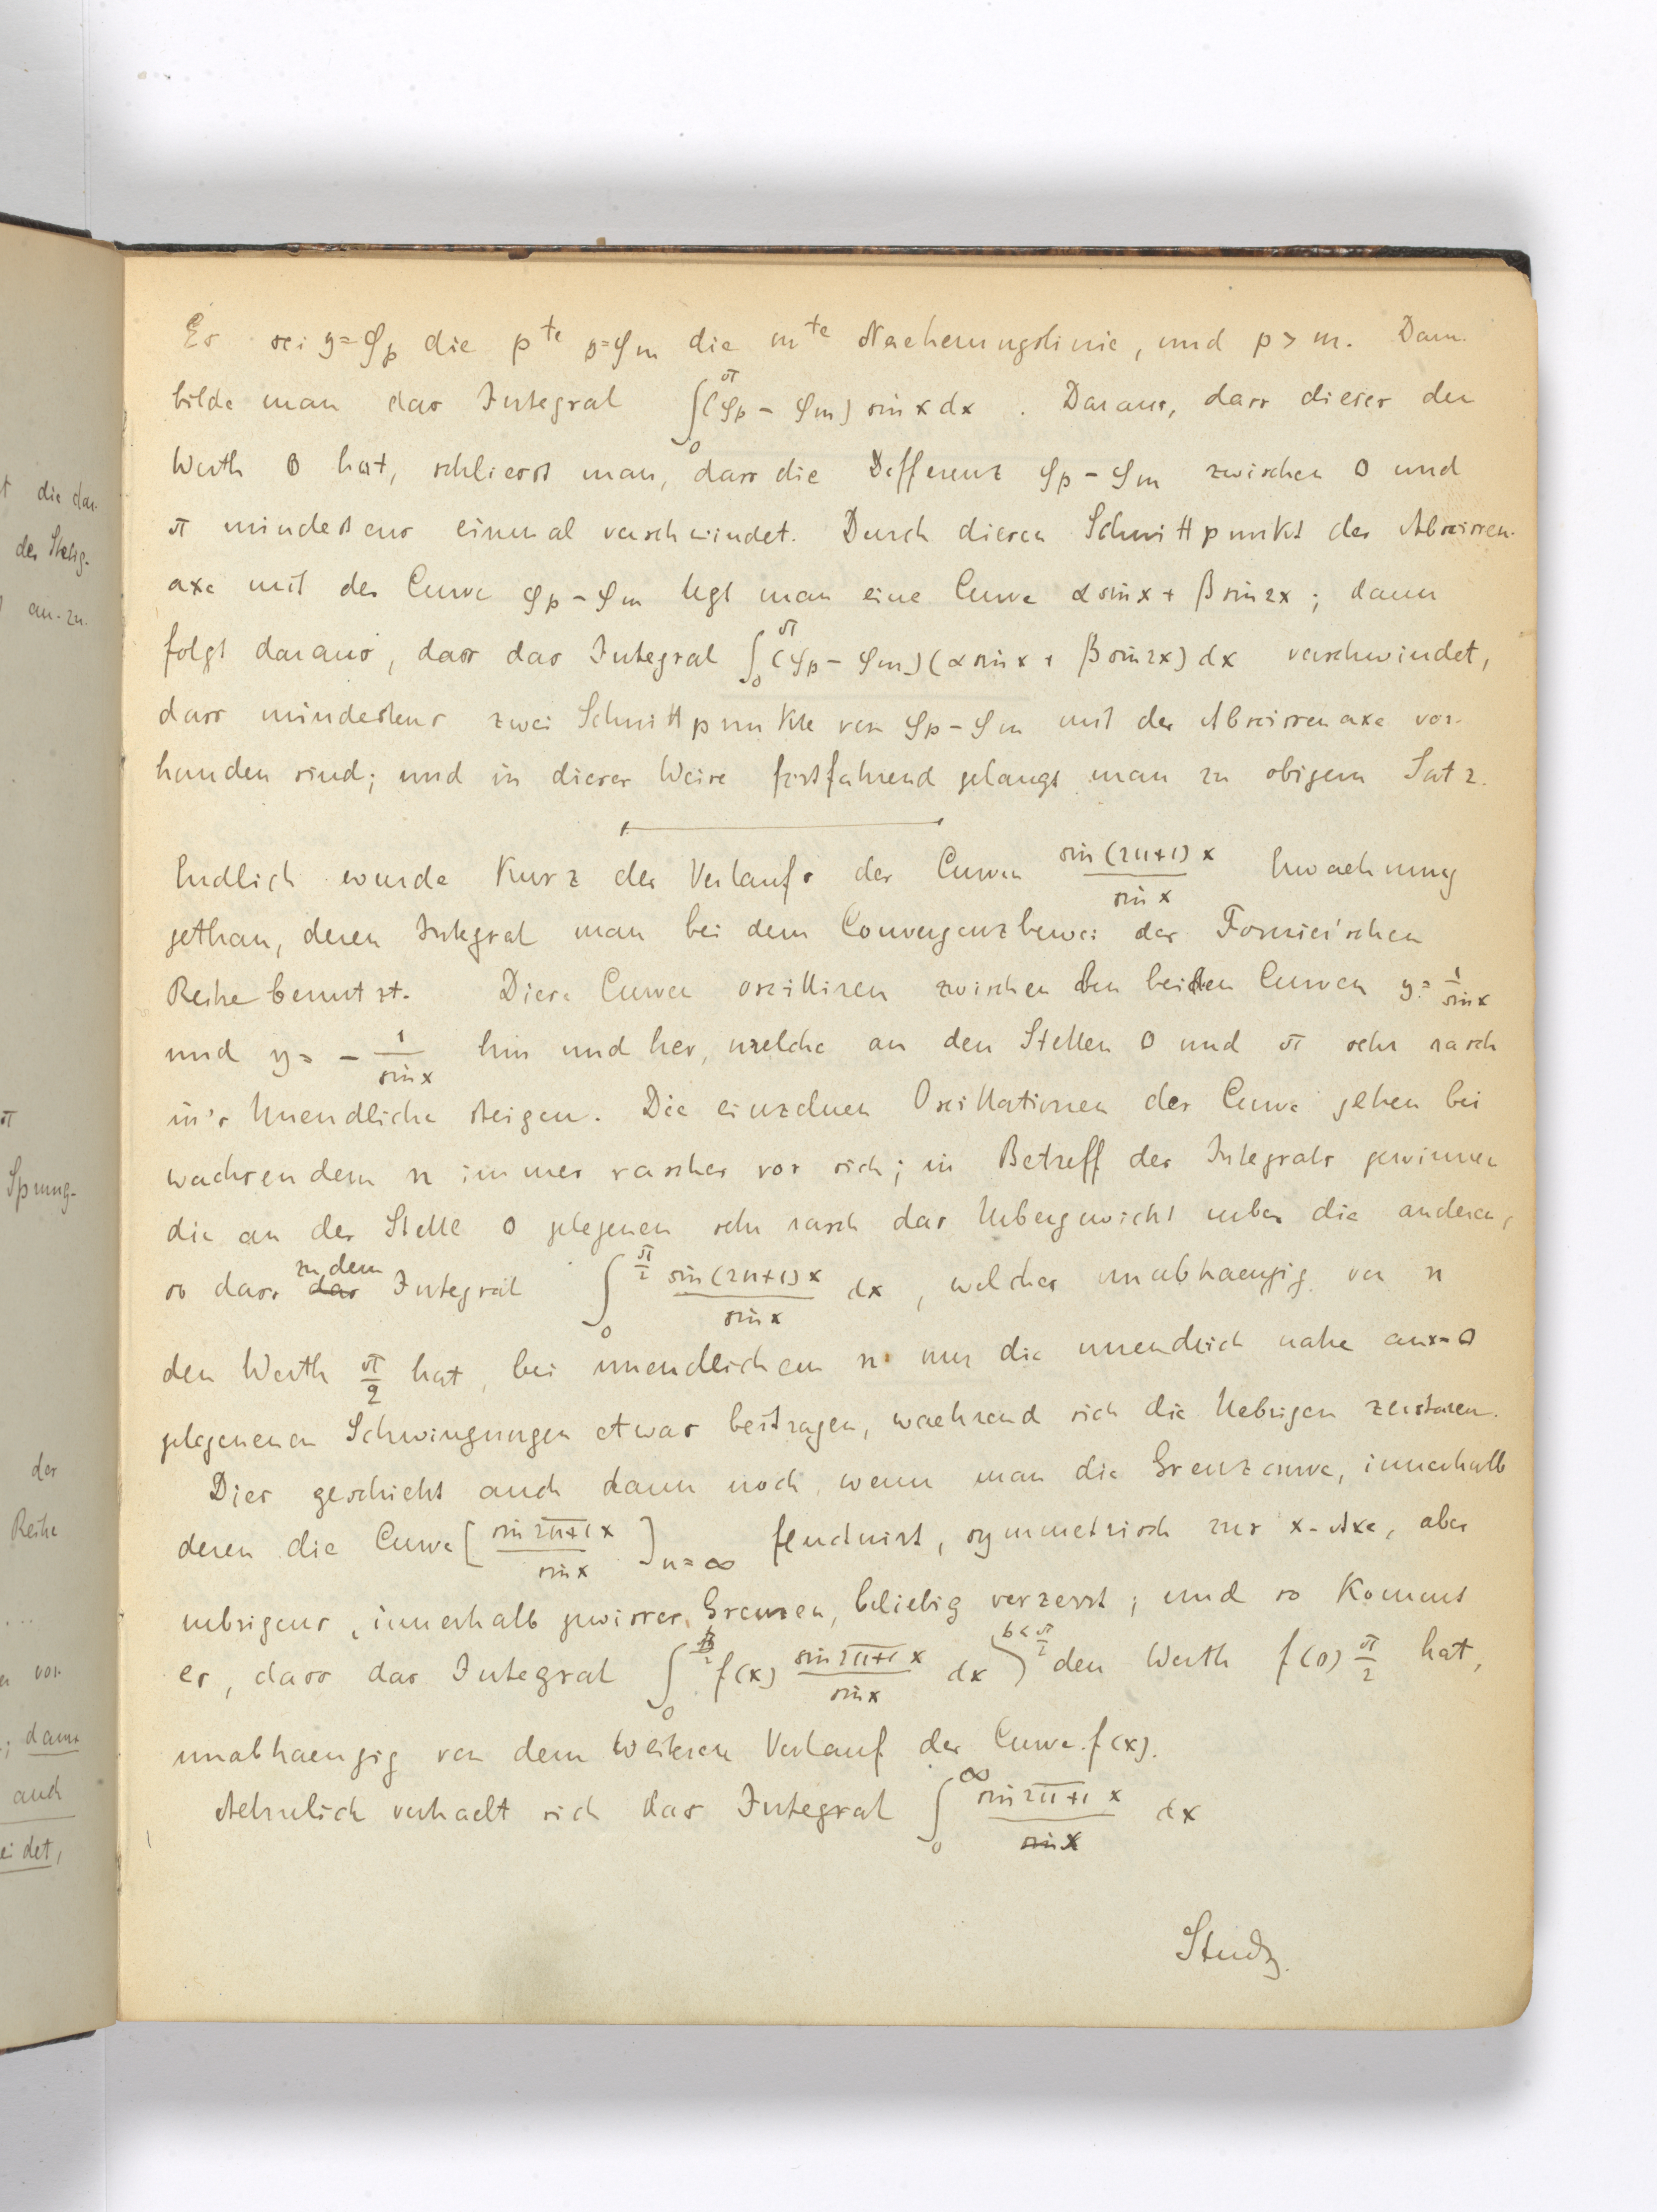 Es sei y=φ_p die p^te y=φ_m die m^te Naeherungslinie, und p > m. Dann
bilde man das Integral ∫_0^π (φ_p - φ_m) sin x dx . Daraus, dass dieses den
Werth 0 hat, schliesst man, dass die Differenz φ_p - φ_m zwischen 0 und
π mindestens einmal verschwindet. Durch diesen Schnittpunkt der Abscissen-
axe mit der Curve φ_p - φ_m legt man eine Curve α sin x + β sin 2x ; dann
folgt daraus, dass das Integral ∫_0^π (φ_p - φ_m)(α sin x + β sin 2x) dx verschwindet,
dass mindestens zwei Schnittpunkte von φ_p - φ_m mit der Abscissenaxe vor-
handen sind; und in dieser Weise fortfahrend gelangt man zu obigem Satz.
Endlich wurde kurz des Verlaufs der Curven sin (2n+1) x / sin x Erwaehnung
gethan, deren Integral man bei dem Convergenzbeweis der Fourier'schen
Reihe benutzt. Diese Curven oscilliren zwischen den beiden Curven y = 1/sin x
und y = - 1/sin x hin und her, welche an den Stellen 0 und π sehr rasch
in's Unendliche steigen. Die einzelnen Oscillationen der Curve gehen bei
wachsendem n immer rascher vor sich; in Betreff des Integrals gewinnen
die an der Stelle 0 gelegenen sehr rasch das Uebergewicht ueber die anderen,
so dass zu dem Integral ∫_0^{π/2} sin (2n+1) x / sin x dx , welches unabhaengig von n
den Werth π/2 hat, bei unendlichem n nur die unendlich nahe an x=0
gelegenenen Schwingungen etwas beitragen, waehrend sich die Uebrigen zerstören.
Dies geschieht auch dann noch, wenn man die Grenzcurve, innerhalb
deren die Curve [ sin 2n+1 x / sin x ]_{n=∞} fluctuirt, symmetrisch zur x-Axe, aber
uebrigens, innerhalb gewisser Grenzen, beliebig verzerrt; und so kommt
es, dass das Integral ∫_0^{b<π/2} f(x) sin 2n+1 x / sin x dx den Werth f(0) π/2 hat,
unabhaengig von dem weiteren Verlauf der Curve f(x).
Aehnlich verhaelt sich das Integral ∫_0^∞ sin 2n+1 x / x dx
Study.
t die dar-
der Stetig-
an-zu-
π
Sprung-
der
Reihe
...
vor-
; dann
auch
eidet,